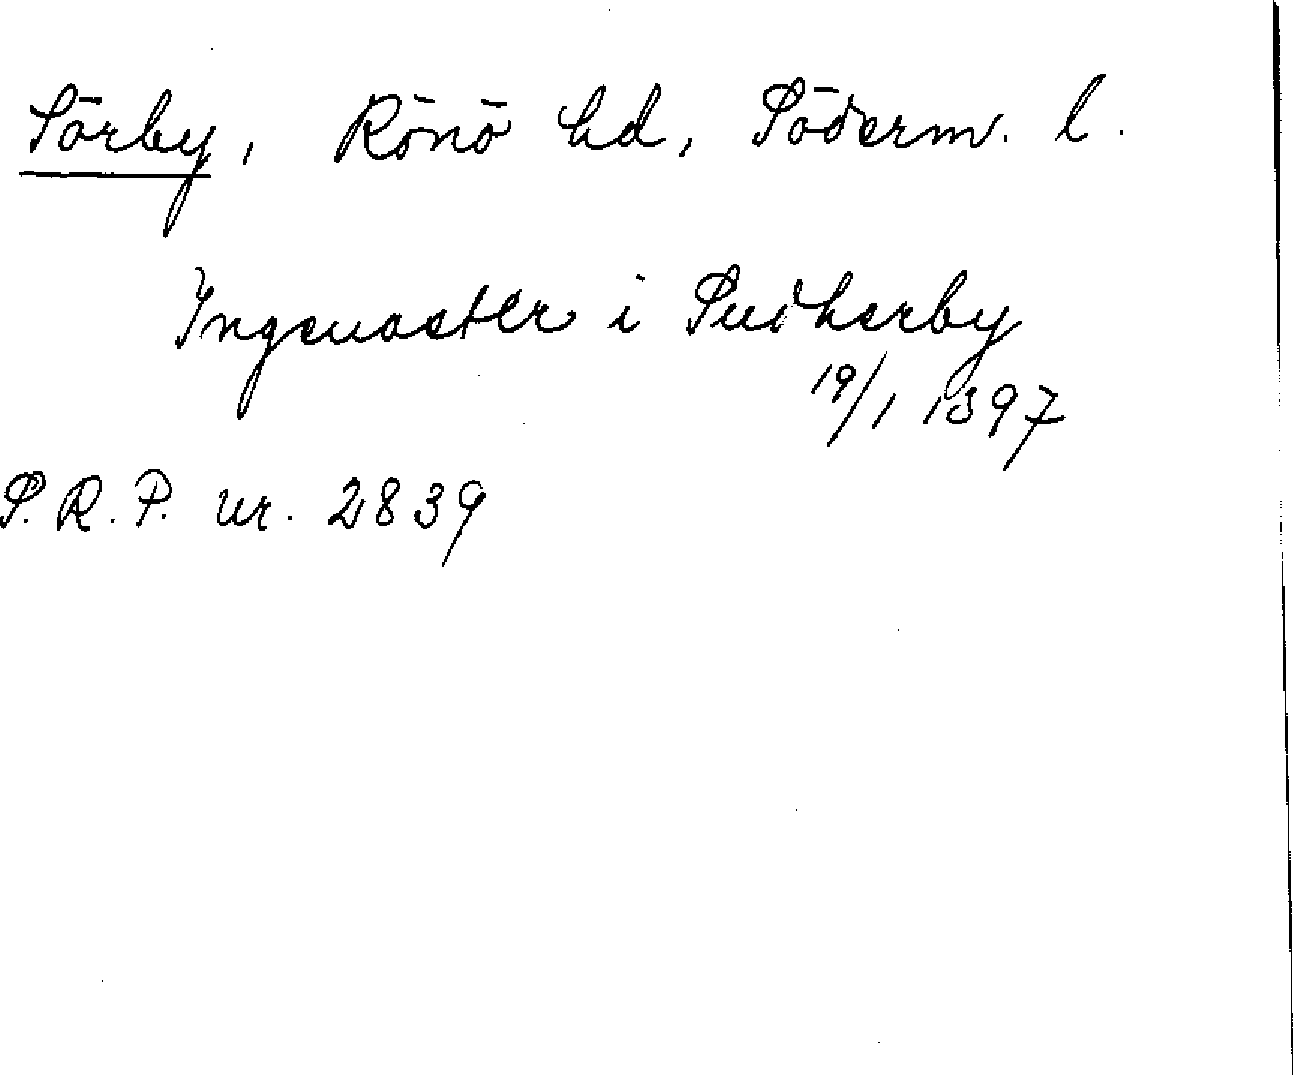 Sörby, Rönö hd, Söderm. l.
Ingeuaster i Sudherby
19/1 1397
S.R.P. nr. 2839